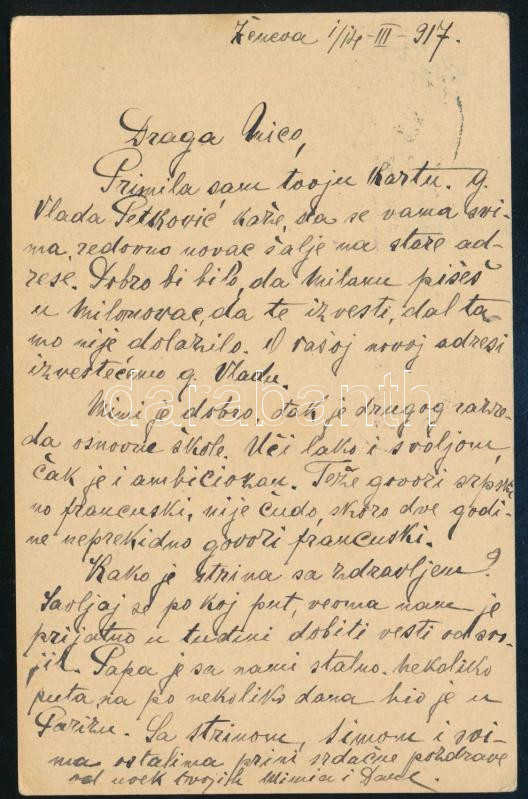 Ženeva 1/14-III-917.
Draga Mico,
Primila sam tvoju kartu. g.
Vlada Petković kaže, da se vama svi-
ma, redovno novac šalje na stare ad-
rese. Dobro bi bilo, da Milanu pišeš
u Milonovac, da te izvesti, dal ta-
mo nije dolazilo. O vašoj novoj adresi
izvestićemo g. Vladu.
Mimi je dobro, đak je drugog razre-
da osnovne škole. Uči lako i s voljom,
čak je i ambiciozan. Teže govori srpski
no francuski, nije čudo, skoro dve godi-
ne neprekidno govori francuski.
Kako je strina sa zdravljem?
Javljaj se po koj put, veoma nam je
prijatno u tuđini dobiti vesti od svo-
jih. Papa je sa nama stalno. Nekoliko
puta na po nekoliko dana bio je u
Parizu. Sa strinom, Simom i svi-
ma ostalima primi srdačne pozdrave
od uvek tvojih Mimia i
darabanth